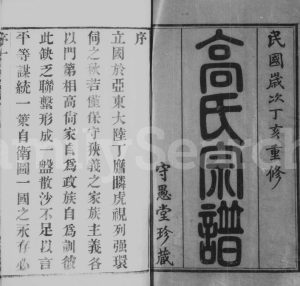 民國歲次丁亥重修
高氏宗譜
守愚堂珍藏
序
立國於亞東大陸丁鷹瞵虎視列强環
伺之秋若僅保守狹義之家族主義各
以門第相高尚家自為政族自為訓欲
此缺乏聯繫形成一盤散沙不足以言
平等謀統一策自衛圖一國之永存必
FamilySearch